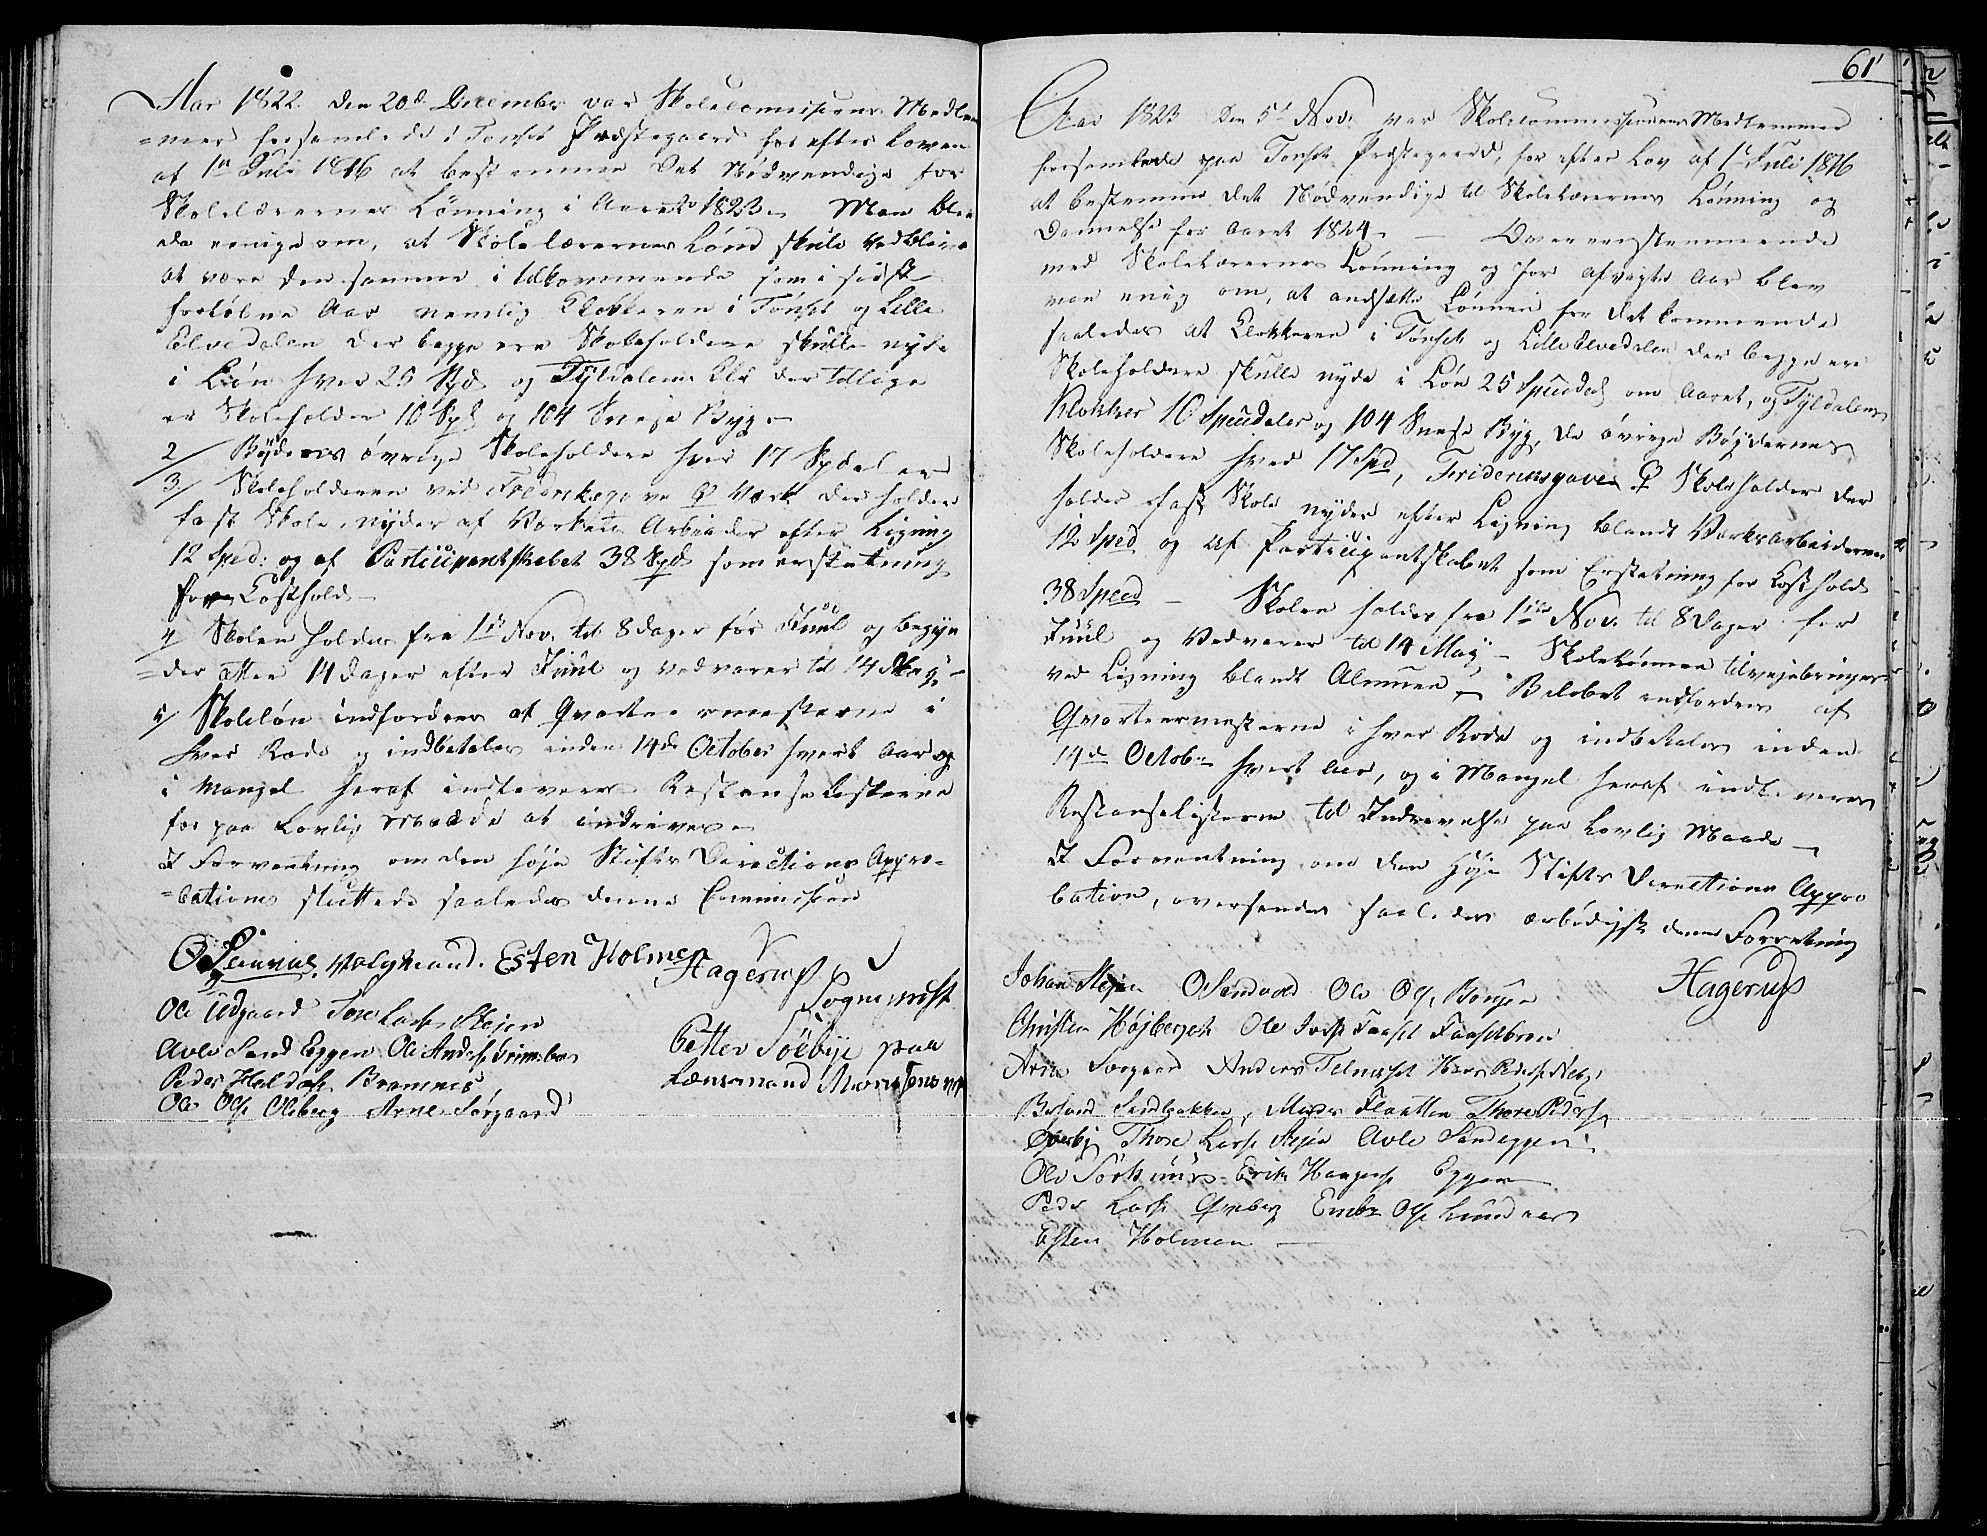 Aar 1822 den 20d December var Skolecommissions Medlem
=mer forsamlede i Tønset Præstegaard for efter Loven
af 1n Juli 1816 at bestemme det Nødvendige for
Skolelærernes Lønning i Aaret 1823. Man blev
da eenige om, at Skolelærernes Lønd skule vedblive
at være den samme i tilkommende som i sidst
forløbne Aar nemlig Klokkeren i Tønset og Lille
Elvedalen der begge ere Skoleholdere skulle nyde
i Løn hver 25 Spd og Tyldalens Klk der tillige
er Skoleholder 10 Spd og 104 Snese Byg -
2/ Bÿdens øvrige Skoleholdere hver 17 Spdaler
3/ Skoleholderen ved Fredriksgave Værk der holder
fast Skole, nyder af Værkets Arbeider efter Ligning
12 Sped: og af Participantskabet 38 Spd som erstatning
for Kosthold -
4/ Skolen holdes fra 1ste Nov. til 8 dager før Juul og begÿn
=der atter 14 dager efter Juul og vedvarer til 14 Maj -
5/ Skoleløn indfordres af Qvarteermesterne i
hver Rode og indbetales inden 14de October hvert Aar og
i Mangel heraf indleveres Restanselisterne
for paa Lovlig Maade at indrives -
I Forventning om den høje Stifts Directions Appro-
=bations sluttede saaledes denne Commission
Esten Holmen Hagerup
Sogneprest
Ole Udgaard Tore Larss Stejen
Avle Sand Eggen Ole Anders
Petter Solbye paa
Lænsmand
Peder Haldoss. Bramnes
Ole Ols Olsberg Arne Sørgaard
61
Aar 1823 den 5t Nov: var Skolecommissionens Medlemmer
forsamlede paa Tønset Præstegaard, for efter Lov af 1 Juli 1816
at bestemme det Nødvendige til Skolelærernes Lønning og
Dannelse for Aaret 1824 - Overeenstemmende
med Skolelærernes Lønning og for afvigte Aar blev
man enig om, at andsætte Lønnen for det kommende
saaledes at Klokkeren i Tønset og Lille Elvedalen der begge ere
Skoleholdere skulle nyde i Løn 25 Speciedl om Aaret, og Tyldalens
Klokker 10 Speciedaler og 104 Snese Byg, de øvrige Bøjdernes
Skoleholdere hved 17 Spd, Fridericsgaves Skoleholder der
holder fast Skole nyder efter Ligning blandt Værksarbeiderne
12 Sped og af Participantskabet som Erstatning for Kosthold
38 Speed - Skolen holdes fra 1ste Nov. til 8 dager før
Juul og Vedvarer til 14 Maÿ - Skolelønnen tilvejebringes
ved Ligning blandt Almuen, - Beløbet indfordres af
Qvarteermesterne i hver Rode og indbetales inden
14de Octobr hvert Aar, og i Mangel heraf indleveres
Restanselisterne til Inddrivelse paa Lovlig Maade -
I Forventning om den Høje Stifts Directions Appro
bation, oversendes saaledes ærbødigst denne Forretning
Hagerup
Johan Stejen O Sandvold Ole Ols. Bonsen
Christen Højberget Ole Faaset
Arne Sørgaard Anders Telneset Hans Peders
Sandbakken, Flaatten Thore Peders
Thore Larss Stejen Avle Sandeggen
Ole Erik Haagens Eggen
Peder Larss Ols Lundnæs
Esten Holmen -